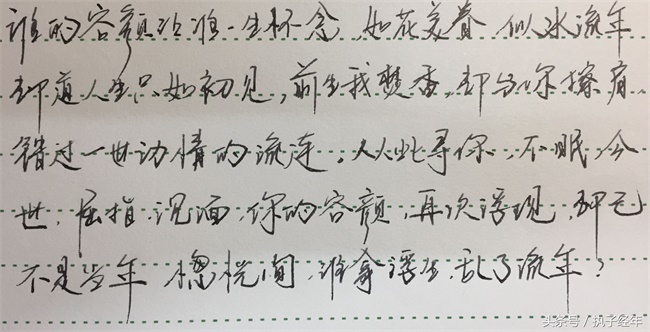 谁的容颜让谁一生怀念 如花美眷 似水流年
却道人生只如初见，前生我焚香，却与你擦肩
错过一世动情的流连，从此寻你，不眠，今
世，屈指沉湎，你的容颜，再次浮现，却已
不是当年 恍惚间，谁拿浮生，乱了流年？
头条号／执子经年